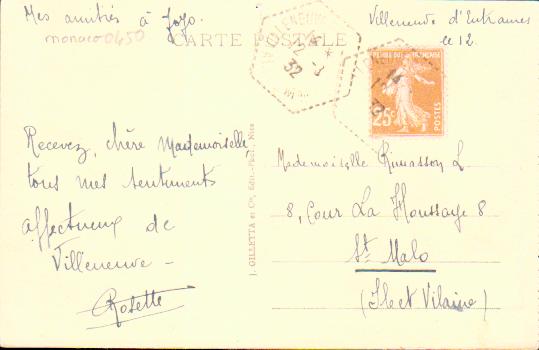 Mes amitiés à Jojo.
monaco0450
CARTE POSTALE
Villeneuve d'Entraunes
le 12.
32
RÉPUBLIQUE FRANÇAISE
25c
POSTES
Recevez, chère Mademoiselle,
tous mes sentiments
affectueux de
Villeneuve -
Rosette
J. GILLETTA et Cie, Édit.-Phot., Nice
Mademoiselle L
8, Cour La Houssaye 8
St Malo
(Ile et Vilaine)